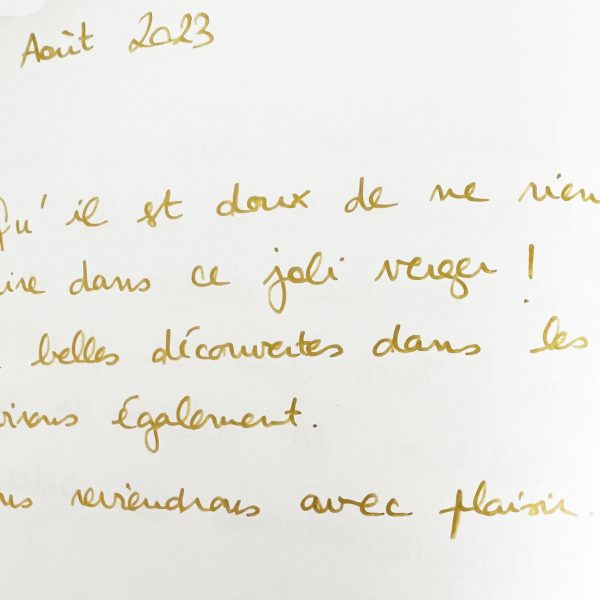 Août 2023
Qu'il est doux de ne rien
ire dans ce joli verger !
belles découvertes dans les
virons également.
us reviendrons avec plaisir.